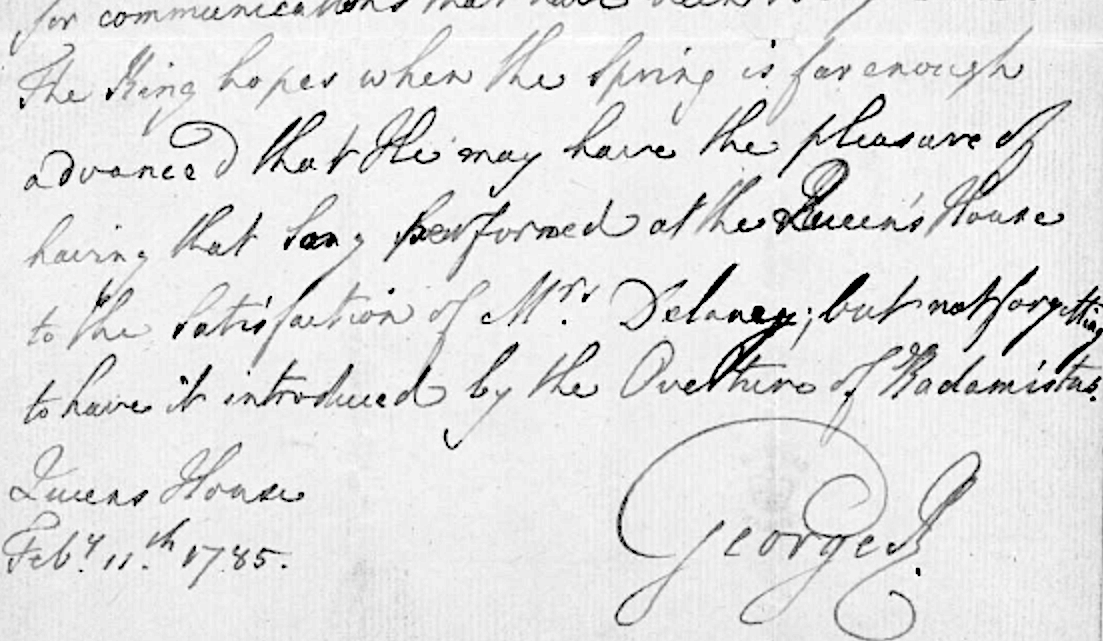 for communications that have been
The King hopes when the Spring is far enough
advanced that He may have the pleasure of
having that Song performed at the Queen's House
to the satisfaction of Mrs. Delaney; but not forgetting
to have it introduced by the Overture of Radamistus.
Queens House
Feby. 11th. 1785.
George R.